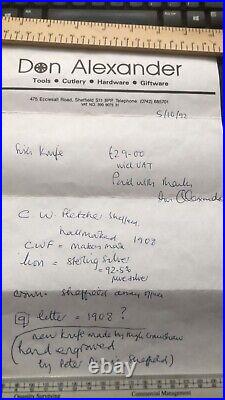 Don Alexander
Tools • Cutlery • Hardware • Giftware
475 Ecclesall Road, Sheffield S11 8PP Telephone: (0742) 685701
VAT NO.
5/10/92
Knife £29-00
incl VAT
Paid with thanks
Don Alexander
C W Fletcher Sheffield
hallmarked 1908
CWF = makers mark
lion = sterling silver
= 92.5%
pure silver
crown = Sheffield assay office
q letter = 1908 ?
new knife made by Hugh Crawshaw
(hand engraved
by Peter Sheffield)
Quantity Surveying Commercial Management